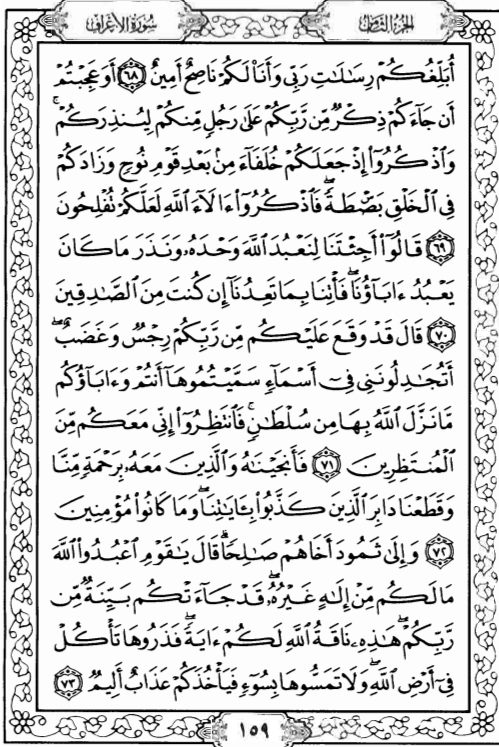 سُورَةُ الأَعْرَافِ
الجُزْءُ الثَّامِنُ
أُبَلِّغُكُمْ رِسَٰلَٰتِ رَبِّي وَأَنَا۠ لَكُمْ نَاصِحٌ أَمِينٌ ٦٨ أَوَعَجِبْتُمْ
أَن جَآءَكُمْ ذِكْرٌ مِّن رَّبِّكُمْ عَلَىٰ رَجُلٍ مِّنكُمْ لِيُنذِرَكُمْ ۚ
وَٱذْكُرُوٓا۟ إِذْ جَعَلَكُمْ خُلَفَآءَ مِنۢ بَعْدِ قَوْمِ نُوحٍ وَزَادَكُمْ
فِي ٱلْخَلْقِ بَصْۜطَةً ۖ فَٱذْكُرُوٓا۟ ءَالَآءَ ٱللَّهِ لَعَلَّكُمْ تُفْلِحُونَ
٦٩ قَالُوٓا۟ أَجِئْتَنَا لِنَعْبُدَ ٱللَّهَ وَحْدَهُۥ وَنَذَرَ مَا كَانَ
يَعْبُدُ ءَابَآؤُنَا ۖ فَأْتِنَا بِمَا تَعِدُنَآ إِن كُنتَ مِنَ ٱلصَّٰدِقِينَ
٧٠ قَالَ قَدْ وَقَعَ عَلَيْكُم مِّن رَّبِّكُمْ رِجْسٌ وَغَضَبٌ ۖ
أَتُجَٰدِلُونَنِي فِيٓ أَسْمَآءٍ سَمَّيْتُمُوهَآ أَنتُمْ وَءَابَآؤُكُم
مَّا نَزَّلَ ٱللَّهُ بِهَا مِن سُلْطَٰنٍ ۚ فَٱنتَظِرُوٓا۟ إِنِّي مَعَكُم مِّنَ
ٱلْمُنتَظِرِينَ ٧١ فَأَنجَيْنَٰهُ وَٱلَّذِينَ مَعَهُۥ بِرَحْمَةٍ مِّنَّا
وَقَطَعْنَا دَابِرَ ٱلَّذِينَ كَذَّبُوا۟ بِـَٔايَٰتِنَا ۖ وَمَا كَانُوا۟ مُؤْمِنِينَ
٧٢ وَإِلَىٰ ثَمُودَ أَخَاهُمْ صَٰلِحًا ۗ قَالَ يَٰقَوْمِ ٱعْبُدُوا۟ ٱللَّهَ
مَا لَكُم مِّنْ إِلَٰهٍ غَيْرُهُۥ ۖ قَدْ جَآءَتْكُم بَيِّنَةٌ مِّن
رَّبِّكُمْ ۖ هَٰذِهِۦ نَاقَةُ ٱللَّهِ لَكُمْ ءَايَةً ۖ فَذَرُوهَا تَأْكُلْ
فِيٓ أَرْضِ ٱللَّهِ ۖ وَلَا تَمَسُّوهَا بِسُوٓءٍ فَيَأْخُذَكُمْ عَذَابٌ أَلِيمٌ ٧٣
١٥٩